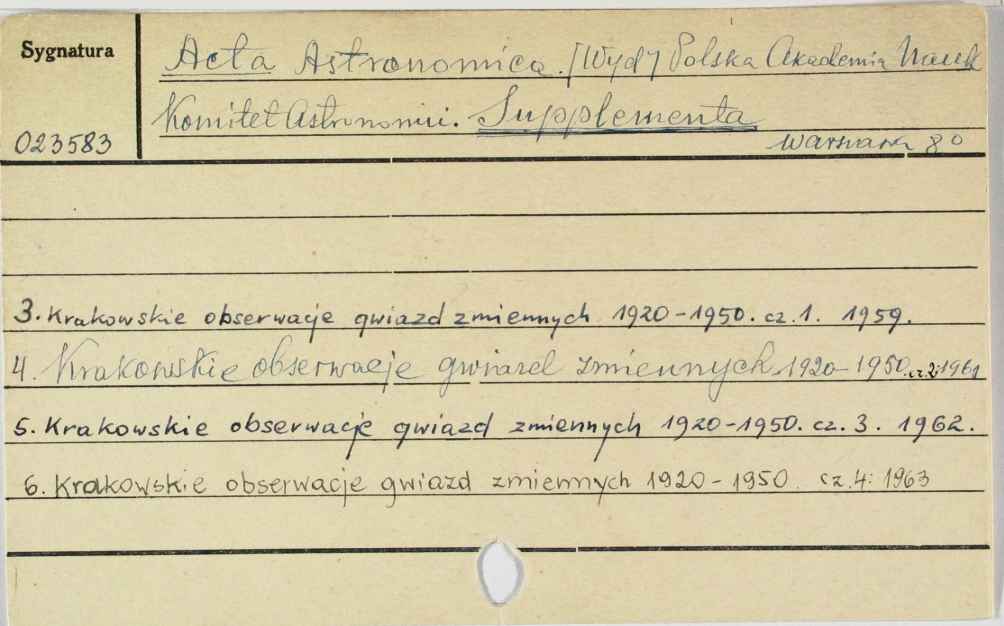 Sygnatura
Acta Astronomica. [Wyd] Polska Akademia Nauk
Komitet Astronomii. Supplementa
023583
Warszawa 8°
3. Krakowskie obserwacje gwiazd zmiennych 1920-1950. cz.1. 1959.
4. Krakowskie obserwacje gwiazd zmiennych 1920-1950. cz.2: 1961
5. Krakowskie obserwacje gwiazd zmiennych 1920-1950. cz. 3. 1962.
6. Krakowskie obserwacje gwiazd zmiennych 1920-1950. cz.4: 1963